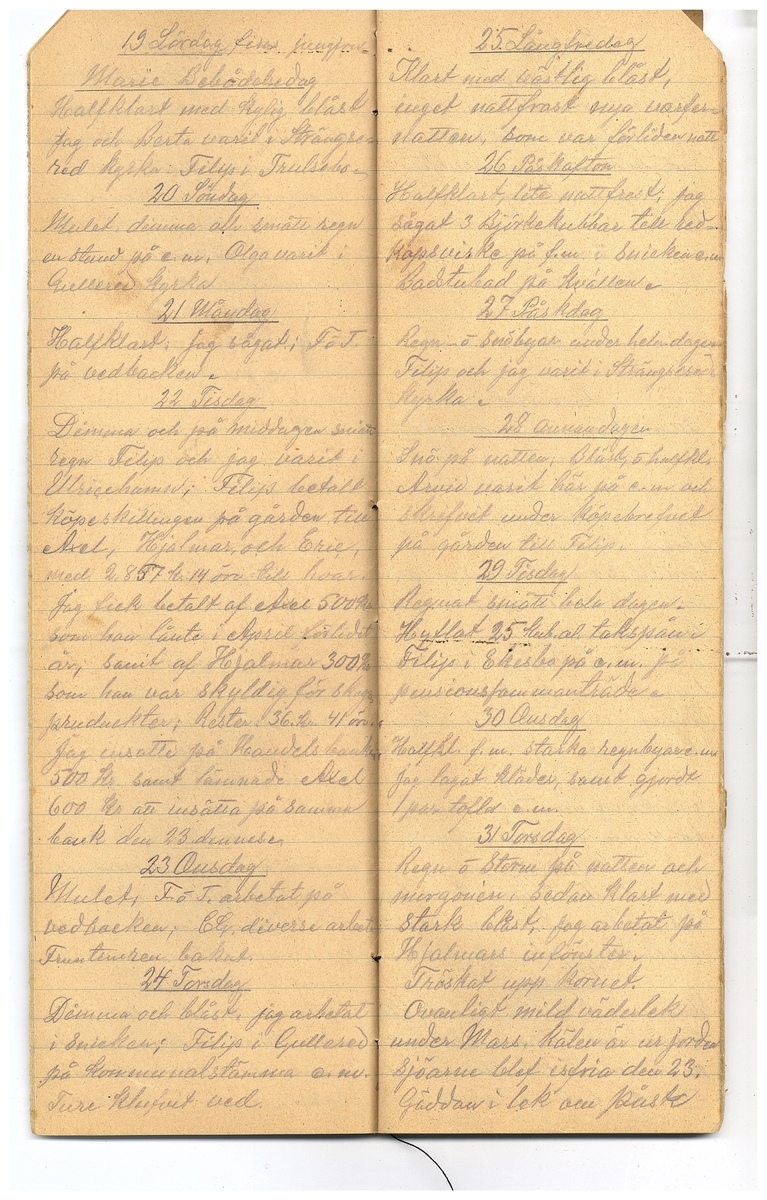 19 Lördag firas jungfru
Marie Bebådelsedag
Halfklart med kylig blåst
jag och Berta varit i Strängse-
red kyrka. Filip i Trulsebo.
20 Söndag
Mulet, dimma och smått regn
en stund på e.m. Olga varit i
Gullered kyrka
21 Måndag
Halfklart; jag sågat; F o T.
på vedbacken.
22 Tisdag
Dimma och på middagen smått
regn Filip och jag varit i
Ulricehamn; Filip betalt
köpeskillingen på gården till
Axel, Hjalmar, och Eric,
med 2.857 kr. 14 öre till hvar.
Jag fick betalt af Axel 500 Kr
som han lånte i April förlidet
år; samt af Hjalmar 300 Kr
som han var skyldig för skogs
produckter; Rester. 36 Kr 41 öre.
Jag insatte på Handelsbank
500 Kr samt lämnade Axel
600 Kr att insätta på samma
bank den 23 dennes.
23 Onsdag
Mulet; F o T. arbetat på
vedbacken; EG, diverse arbete
Fruntimren bakat.
24 Torsdag
Dimma och blåst, jag arbetat
i snicken; Filip i Gullered
på kommunalstämma e.m.
Ture klufvit ved.
25 Långfredag
Klart med västlig blåst,
inget nattfrost nya varfer-
natten, som var förliden natt
26 Påskafton
Halfklart, lite nattfrost; jag
sågat 3 Björkekubbar till red-
skapsvirke på f.m. i snicken e.m
Badstubad på kvällen.
27 Påskdag
Regn- o snöbyar under hela dagen
Filip och jag varit i Strängsered
kyrka.
28 Annandagen
Snö på natten; Blåst, o halfkl.
Arvid varit här på e.m och
skrifvit under köpebrefvet
på gården till Filip.
29 Tisdag
Regnat smått hela dagen.
Hyflat 25 kub.alt takspån;
Filip i Ekesbo på e.m. på
pensionssammanträde.
30 Onsdag
Halfkl. f.m. starka regnbyar e.m
jag lagat kläder, samt gjordt
1 par tofflor e.m.
31 Torsdag
Regn o Storm på natten och
morgonen, sedan klart med
stark blåst, jag arbetat på
Hjalmars infönster.
Tröskat upp kornet.
Ovanligt mild väderlek
under Mars. Kälen är ur jorden
Sjöarne blef isfria den 23.
Gäddan i lek om Påsk